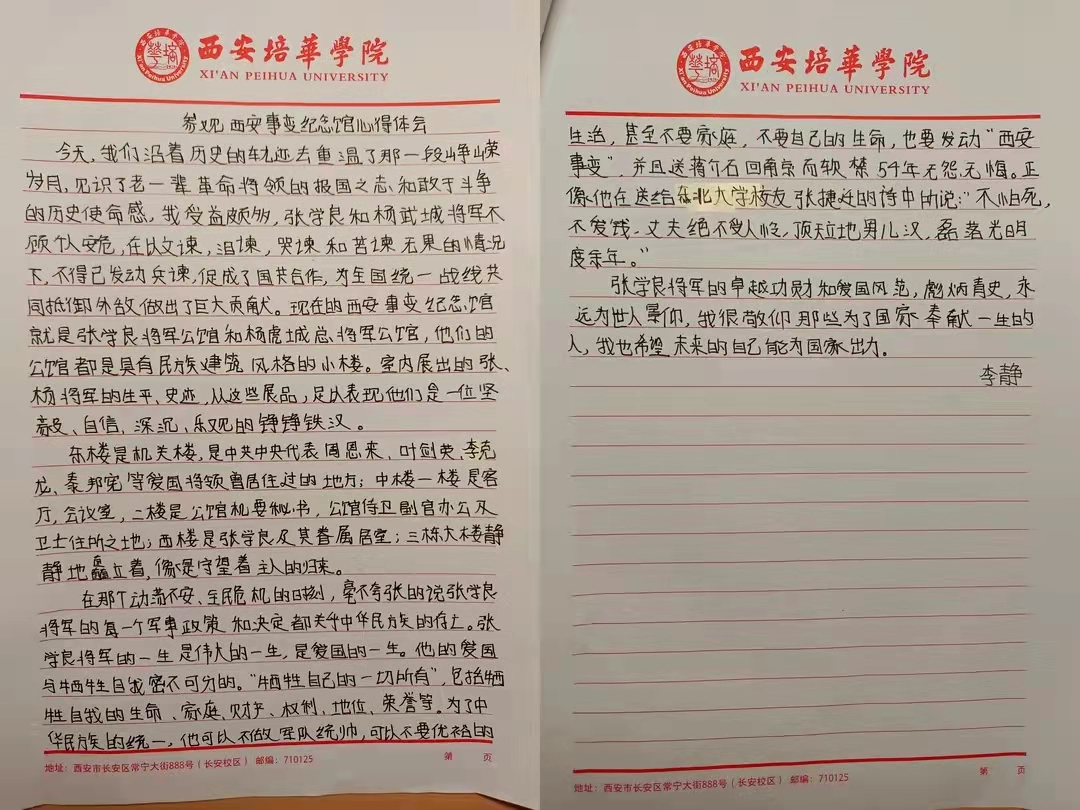 西安培華學院
XI'AN PEIHUA UNIVERSITY
参观西安事变纪念馆心得体会
今天,我们沿着历史的轨迹去重温了那一段峥嵘
岁月,见识了老一辈革命将领的报国之志和敢于斗争
的历史使命感,我受益颇多,张学良和杨武城将军不
顾个人安危,在以文谏,泪谏,哭谏和苦谏无果的情况
下,不得已发动兵谏,促成了国共合作,为全国统一战线共
同抵御外敌做出了巨大贡献。现在的西安事变纪念馆
就是张学良将军公馆和杨虎城总将军公馆,他们的
公馆都是具有民族建筑风格的小楼。室内展出的张、
杨将军的生平、史迹,从这些展品,足以表现他们是一位坚
毅、自信、深沉、乐观的铮铮铁汉。
东楼是机关楼,是中共中央代表周恩来、叶剑英、李克
龙、秦邦宪等爱国将领曾居住过的地方;中楼一楼是客
厅,会议室,二楼是公馆机要秘书,公馆侍卫副官办公及
卫士住所之地;西楼是张学良及其眷属居室;三栋大楼静
静地矗立着,像是守望着主人的归来。
在那个动荡不安、全民危机的时刻,毫不夸张的说张学良
将军的每一个军事政策和决定都关乎中华民族的存亡。张
学良将军的一生是伟大的一生,是爱国的一生。他的爱国
与牺牲自我密不可分的。“牺牲自己的一切所有”,包括牺
牲自我的生命、家庭、财产、权利、地位、荣誉等。为了中
华民族的统一,他可以不做军队统帅,可以不要优裕的
地址:西安市长安区常宁大街888号(长安校区) 邮编:710125 第 页
西安培華學院
XI'AN PEIHUA UNIVERSITY
生活,甚至不要家庭,不要自己的生命,也要发动“西安
事变”,并且送蒋介石回南京而软禁54年无怨无悔。正
像他在送给东北大学校友张捷迁的诗中所说:“不怕死,
不爱钱,丈夫绝不受人怜,顶天立地男儿汉,磊落光明
度余年。”
张学良将军的卓越功勋和爱国风范,彪炳青史,永
远为世人景仰,我很敬仰那些为了国家奉献一生的
人,我也希望未来的自己能为国家出力。
李静
地址:西安市长安区常宁大街888号(长安校区) 邮编:710125 第 页